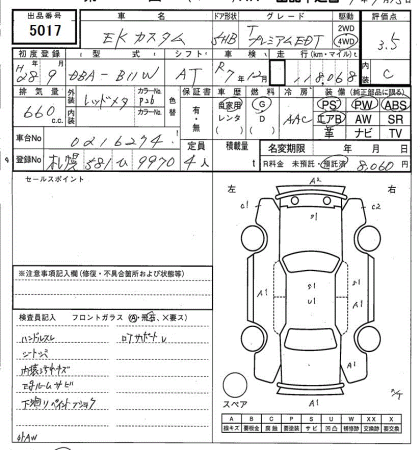 出品番号 車名 ドア形状 グレード 駆動 評価点
5017 EKカスタム 5HB T プレミアムEDT 2WD 4WD 3.5
初度登録 型式 シフト 車検 走行(km・マイル) 内装
H28. 9 DBA-B11W AT R7年 月 118,068 C
排気量 外装 カラーNo. 色替 保証書 車歴 燃料 冷房 装備(純正部品に限る)
660 c.c. レッドメタ P26 有・無 自家用 レンタ G D AAC PS PW ABS
内装 カラーNo. エアB AW SR
革 ナビ TV
車台No 0216274 定員 積載量 名変期限 年 月 日
登録No 札幌 581 ひ 9970 4人 t R料金 未預託・預託済 8,060円
セールスポイント
左 右
A2
C1 S1 C2
A1 S1 U1 A1
A1
S1
※注意事項記入欄(修復・不具合箇所および状態等)
検査員記入 フロントガラス(A・飛石、×要ス)
ハンドルスレ ロアサポートU
シートシミ
内装キズ
下廻り
スペア
A B C P S U W X XX
線キズ 要板金 腐蝕 要塗装 サビ 凹凸 補修跡 交換跡 要交換